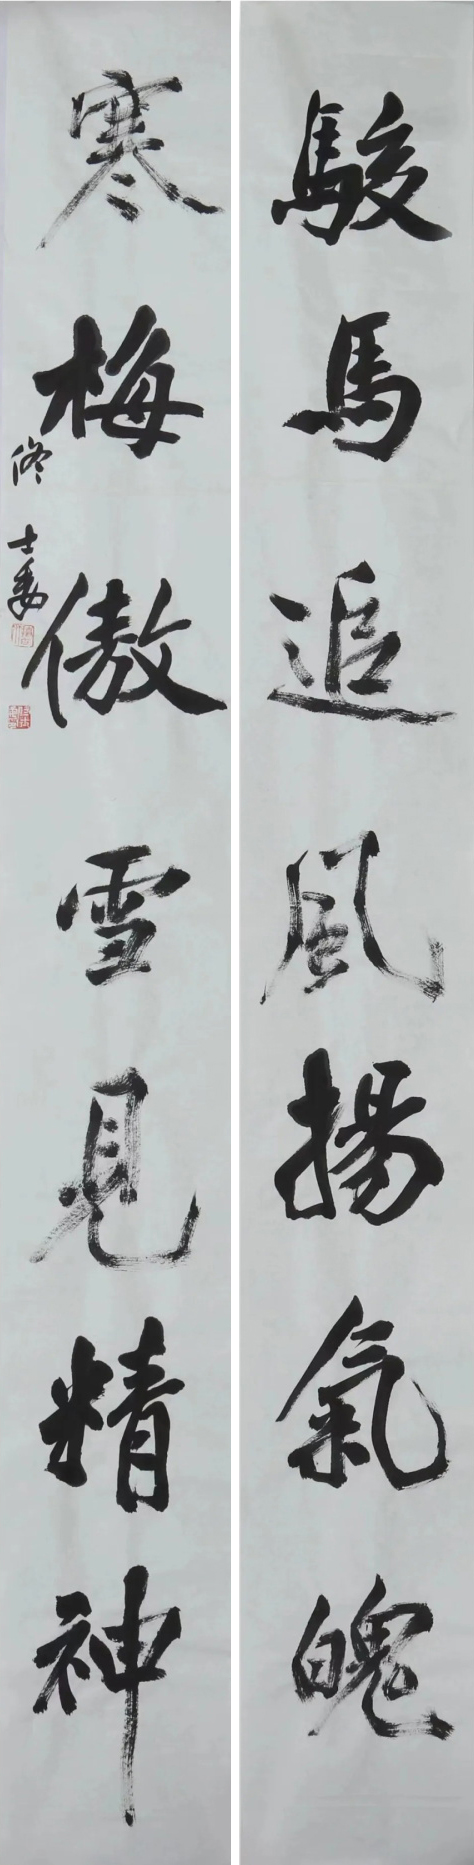 駿馬追風揚氣魄
寒梅傲雪見精神
佟